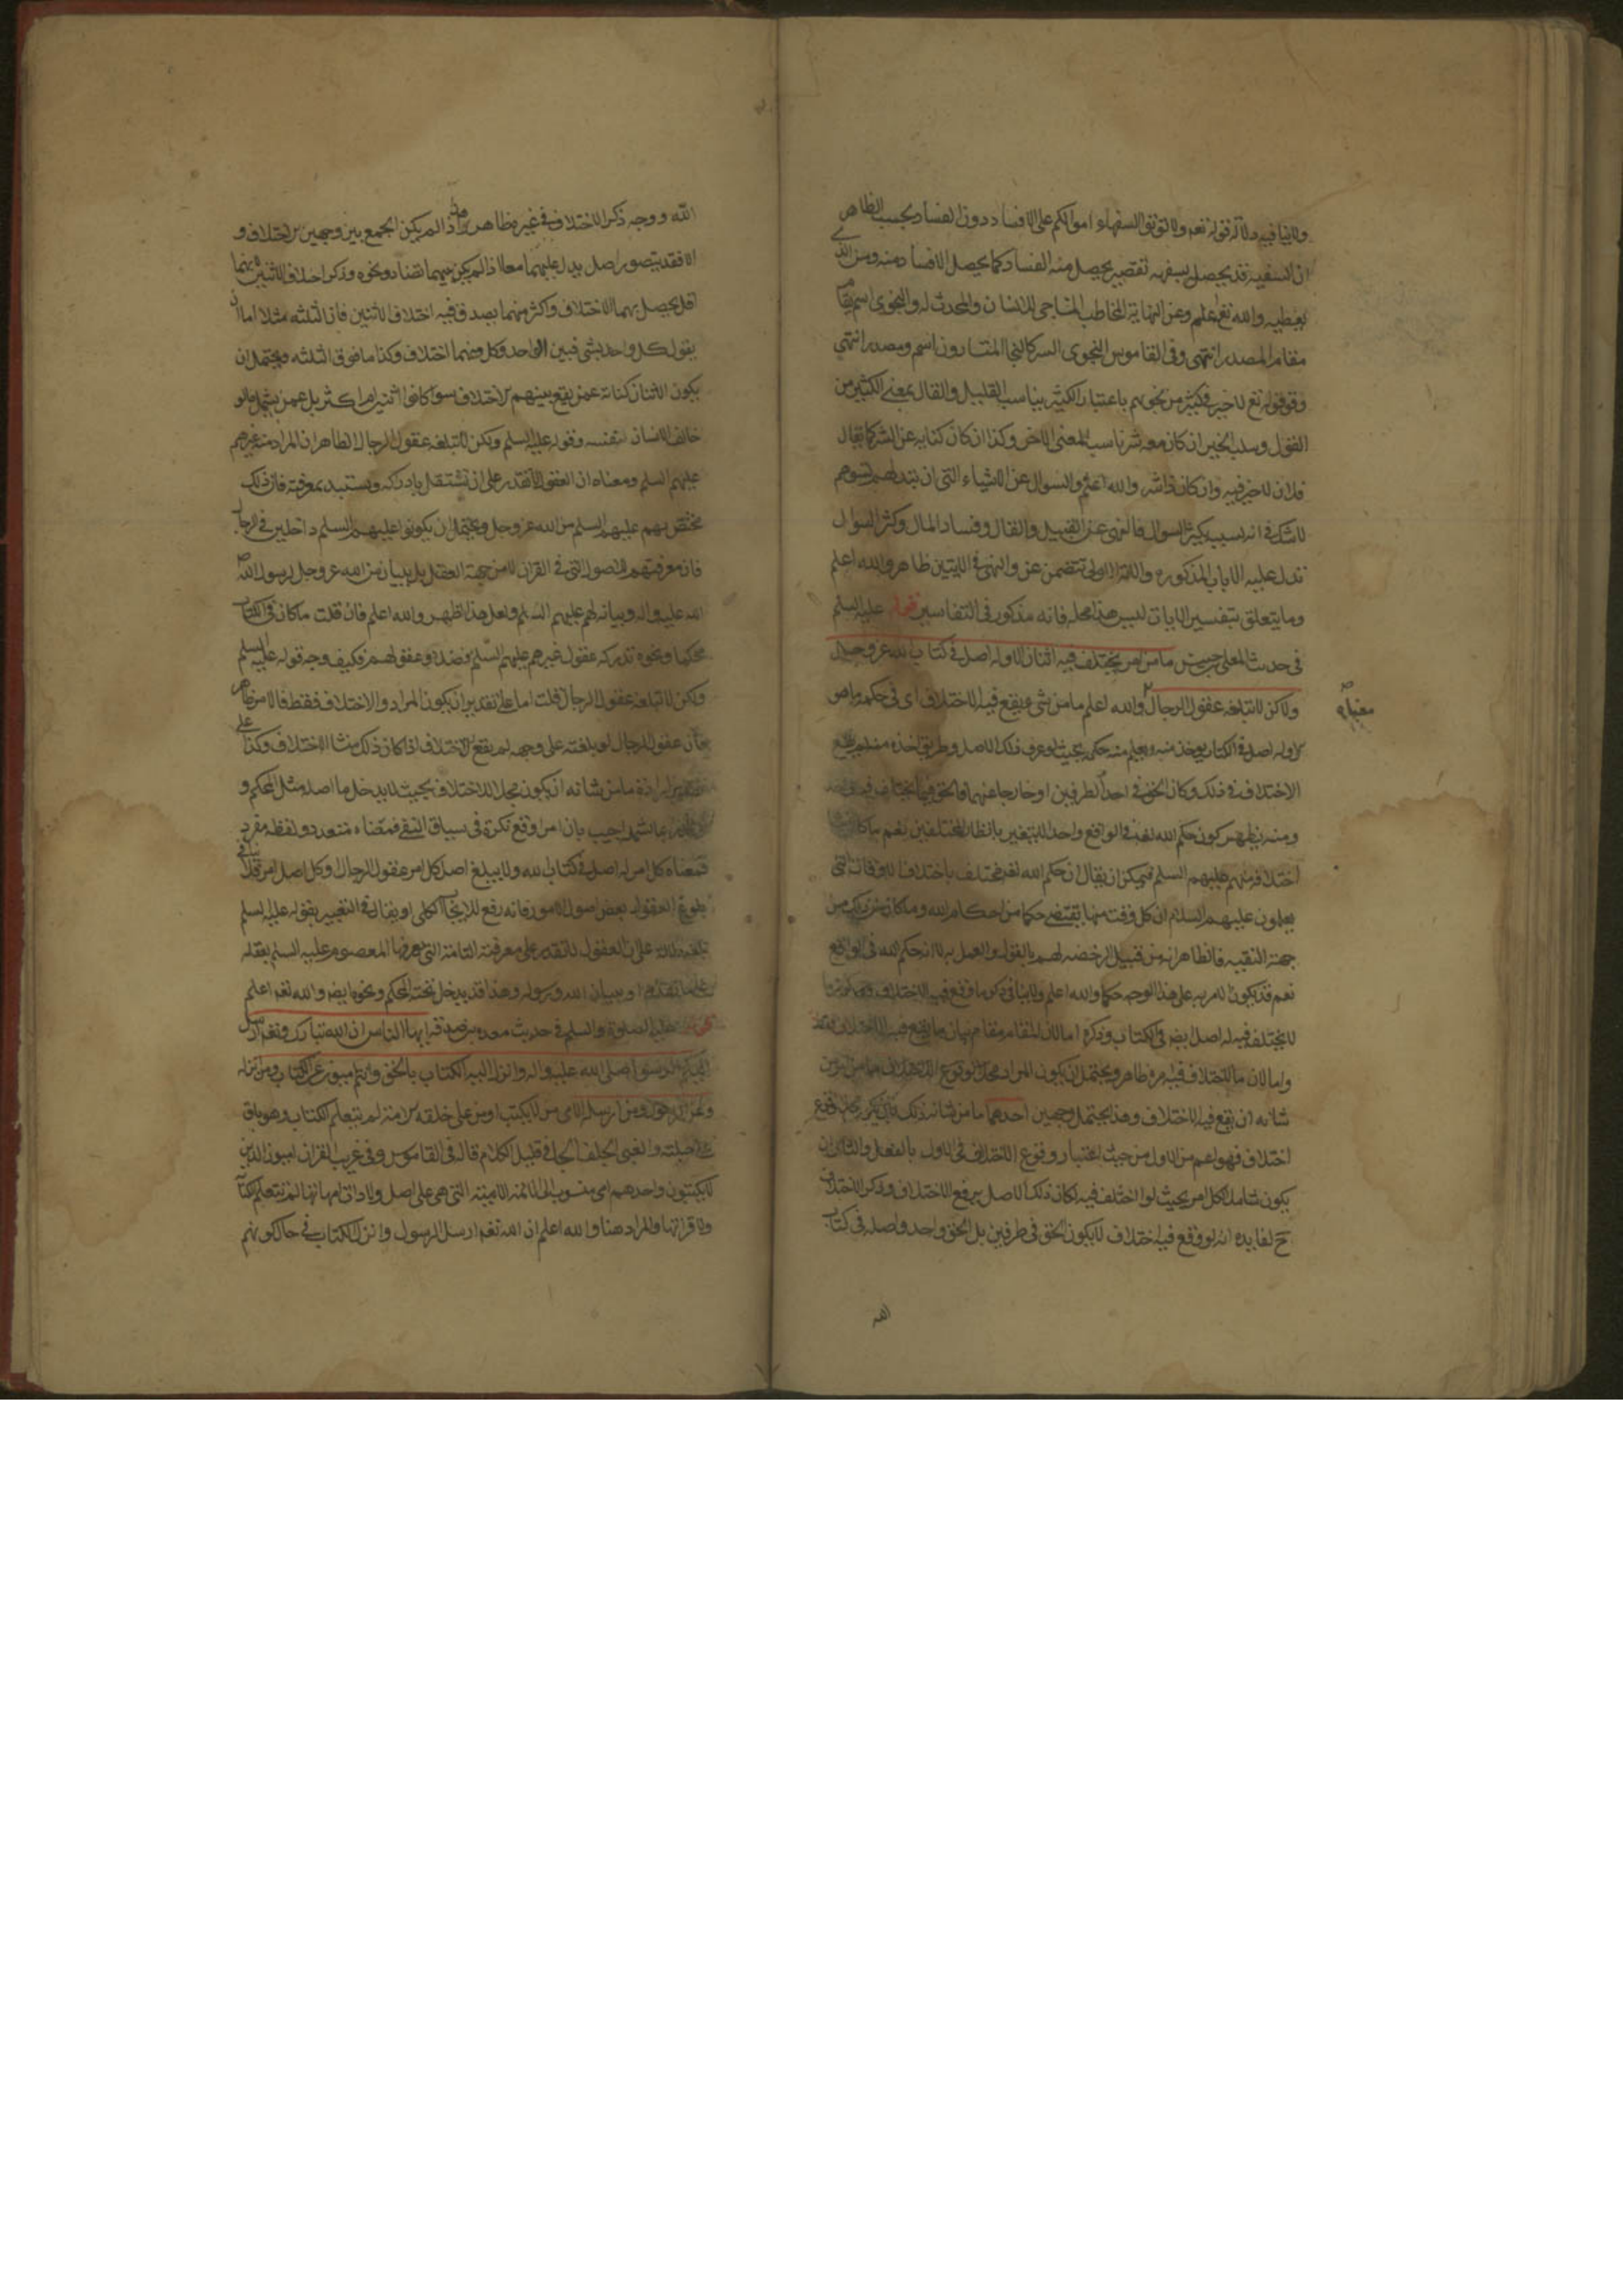 ولا ينافيه دلالة قوله تعالى ولا تؤتوا السفهاء اموالكم على الافساد دون الفساد بحسب الظاهر
ان السفيه قد يحصل بسفهه تقصير يحصل منه الفساد كما يحصل الافساد منه ومن الذي
يعطيه والله تعالى اعلم وعن النهاية المخاطب المناجي للانسان والمحدث له والنجوى اسم يقام
مقام المصدر انتهى وفي القاموس النجوى السر كالنجا المتسارون اسم ومصدر انتهى
وقوله تع لا خير في كثير من نجويهم باعتبار الكثير يناسب القليل والقال بمعنى الكثير من
القول وسلب الخير ان كان معه شر ناسب المعنى الاخر وكذا ان كان كناية عن الشر كما يقال
فلان لا خير فيه وان كان ذا شر والله اعلم والسوال عن الاشياء التي ان تبد لهم تسوهم
لا شك في انه بسبب كثرة السوال فالنهى عن القيل والقال وفساد المال وكثر السوال
تدل عليه الايات المذكوره والاية الاولى تتضمن عن والنهي في الايتين ظاهر والله اعلم
وما يتعلق بتفسير الايات ليس هذا محله فانه مذكور في التفاسير قوله عليه السلم
في حديث المعلى بن خنيس ما من امر يختلف فيه اثنان الا وله اصل في كتاب الله عز وجل
ولكن لا تبلغه عقول الرجال والله اعلم ما من شئ يقع فيه الاختلاف اى في حكمه
الا وله اصل في الكتاب يوخذ منه ويعلم منه حكمه بحيث لو عرف ذلك الاصل وطريق اخذه منه لم يقع
الاختلاف في ذلك وكان الحق في احد الطرفين او خارجا عنهما فالحق فيما يختلف فيه واحد
ومنه يظهر كون حكم الله تعالى في الواقع واحد لا يتغير بانظار المختلفين نعم ما كان
اختلاف منهم عليهم السلم فيمكن ان يقال ان حكم الله تعالى مختلف باختلاف الاوقات التي
يعلمون عليهم السلام ان كل وقت منها يقتضي حكما من احكام الله وما كان من ذلك من
جهة التقيه فالظاهر انه من قبيل الرخصه لهم بالقول والعمل به لا انه حكم الله في الواقع
نعم قد يكون الامر به على هذا الوجه حكما والله اعلم ولا ينافي ذكر ما وقع فيه الاختلاف
لا يختلف فيه له اصل ايض في الكتاب وذكره اما لان المقام مقام بيان ما يقع فيه الاختلاف
واما لان ما لا اختلاف فيه امره ظاهر ويحتمل ان يكون المراد محل وقوع الاختلاف
شانه ان يقع فيه الاختلاف وهذا يحتمل وجهين احدهما ما من شانه ذلك
اختلاف فهو اعم من الاول من حيث اختيار وقوع الاختلاف في الاول بالفعل والثاني ان
يكون شاملا لكل امر بحيث لو اختلف فيه لكان ذلك الاصل يرفع الاختلاف وذكر الاختلاف
ح لفايده انه لو وقع فيه اختلاف لا يكون الحق في طرفين بل الحق واحد واصله في كتاب
الله
الله ووجه ذكر الاختلاف في غير ظاهر اذ لم يكن الجمع بين وجهين الاختلاف و
الا فقد يتصور اصل يدل عليهما معا اذا لم يكن بينهما تضاد ونحوه وذكر اختلاف الاثنين
اقل يحصل بهما الاختلاف واكثر منهما يصدق فيه اختلاف الاثنين فان الثلثه مثلا اما ان
يقول كل واحد بشئ فبين الواحد وكل منهما اختلاف وكذا ما فوق الثلثه ويحتمل ان
يكون الاثنان كناية عمن يقع بينهم الاختلاف سوا كانوا اثنين او اكثر بل عمن يشمل ما لو
خالف الانسان نفسه وقوله عليه السلم ولكن لا تبلغه عقول الرجال الظاهر ان المراد منه غيرهم
عليهم السلم ومعناه ان العقول لا تقدر على ان تستقل بادراكه وتستبد بمعرفته فان ذلك
مختص بهم عليهم السلم من الله عز وجل ويحتمل ان يكونوا عليهم السلم داخلين في الرجال
فان معرفتهم الاصول التي في القران لا من جهة العقل بل ببيان من الله عز وجل لرسول الله
الله عليه واله وبيانه لهم عليهم السلم ولعل هذا اظهر والله اعلم فان قلت ما كان في الكتاب
محكما ونحوه تدركه عقول غيرهم عليهم السلم فضلا عن عقولهم فكيف وجه قوله عليه السلم
ولكن لا تبلغه عقول الرجال قلت اما على تقدير ان يكون المراد والاختلاف فقط فالامر ظاهر
فان عقول الرجال لو بلغته على وجهه لم يقع الاختلاف اذا كان ذلك منشا الاختلاف وكذا على
تقدير ارادة ما من شانه ان يكون محل الاختلاف بحيث لا يدخل ما اصله مثل المحكم و
اجيب بان امر وقع نكرة في سياق النفي فمعناه متعدد ولفظه مفرد
فمعناه كل امر له اصل في كتاب الله ولا يبلغ اصل كل امر عقول الرجال وكل اصل امر فلا ينافي
بلوغ العقول بعض اصول الامور فانه رفع للايجاب الكلى او يقال في التعبير بقوله عليه السلم
تبلغه دلالة على ان العقول لا تقدر على معرفته التامة التي يعرفها المعصوم عليه السلم بعقله
على ما تقدم او ببيان الله ورسوله وهذا قد يدخل تحته المحكم ونحوه ايضا والله تعالى اعلم
عليه الصلوة والسلم في حديث مسعدة بن صدقة ايها الناس ان الله تبارك وتعالى ارسل
اليكم الرسول صلى الله عليه واله وانزل اليه الكتاب بالحق وانتم اميون عن الكتاب ومن انزله
وعن الرسول ومن ارسله الامى من لا يكتب او من على خلقه الامة لم يتعلم الكتاب وهو باق
على جبلته والغبى الجلف الجافي القليل الكلام قاله في القاموس وفي غريب القران اميون الذين
لا يكتبون واحدهم امى منسوب الى الامة الامية التي هي على اصل ولادات امهاتها لم تتعلم الكتابة
ولا قراتها والمراد هنا والله اعلم ان الله تعالى ارسل الرسول وانزل الكتاب في حال كونهم